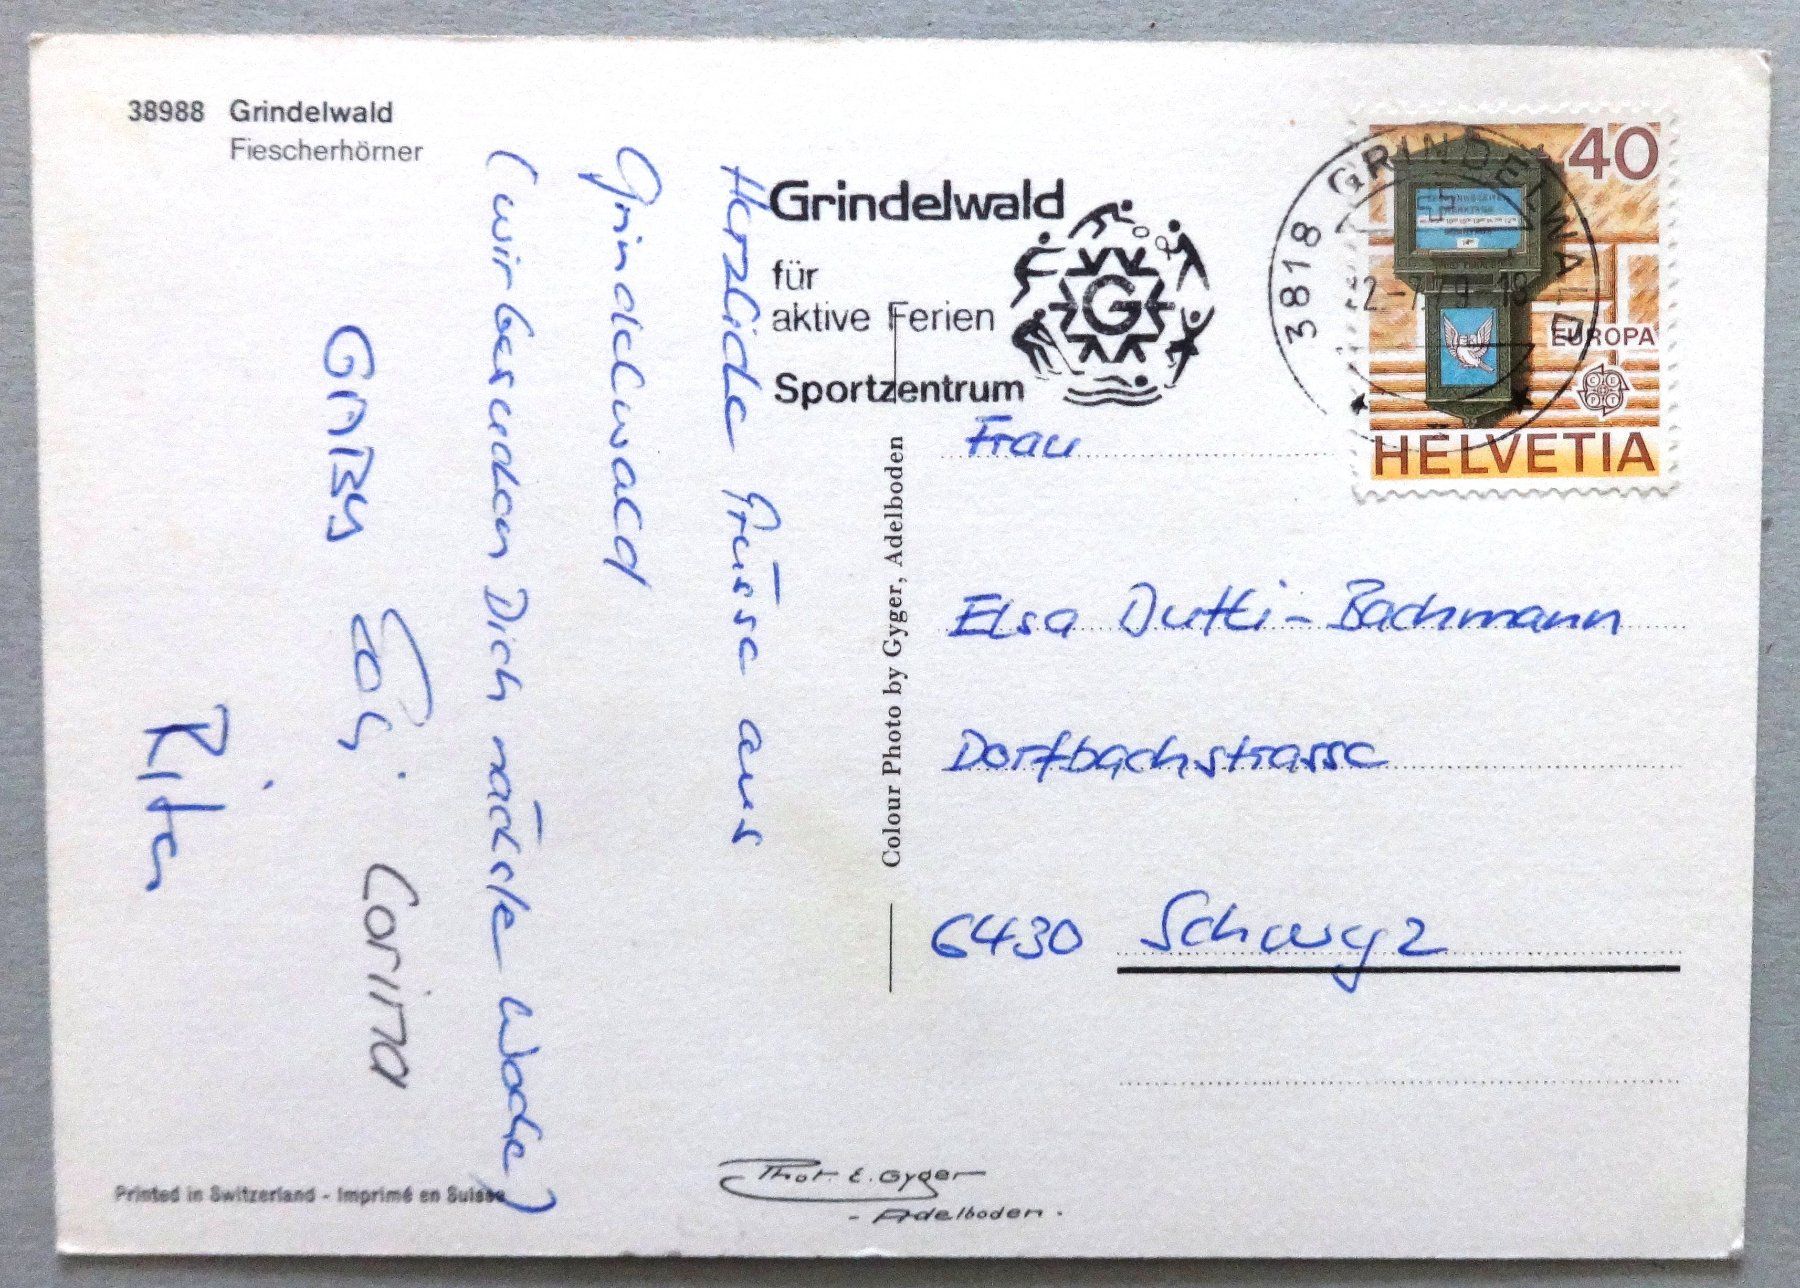 38988 Grindelwald
Fiescherhörner
Herzliche Grüsse aus
Grindelwald
(wir besuchen Dich nächste Woche)
GABY Edi Corina
Rita
Grindelwald
für
aktive Ferien
Sportzentrum
G
3818 GRINDELWALD
40
EUROPA
CEPT
HELVETIA
Frau
Elsa Dutti-Bachmann
Dorfbachstrasse
6430 Schwyz
Colour Photo by Gyger, Adelboden
Printed in Switzerland - Imprimé en Suisse
Phot. E. Gyger
- Adelboden -